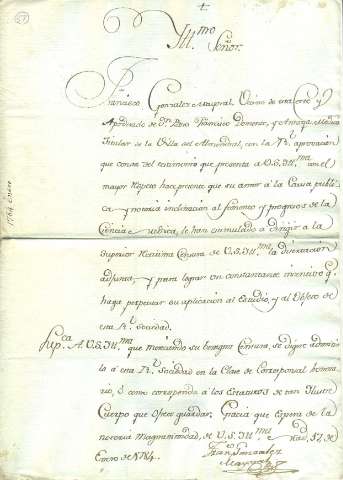 +
Illmo Señor.
Francisco Gonzalez Mayoral. Vecino de esta Corte y
Apoderado de Dn Pedro Francisco Domenec, y Amiga, Medico
Titular de la Villa del Almudebal, con la Rl aprovacion
que consta del testimonio que presenta a V.S.Illma con el
mayor respeto hace presente que su amor à la Causa publi
ca y notoria inclinacion al fomento y progresos de la
Ciencia Medica, le han estimulado a dirigir a la
Superior Censura de V.S.Illma la disertacion
adjunta, y para lograr un constante incentivo q
haga perpetuar su aplicacion al Estudio, y al Obsequio de
esta Rl Sociedad.
Sup.ca A. V.S.Illma que mereciendo su benigna Censura, se digne admitir
lo à esta Rl Sociedad en la Clase de Corresponsal honora
rio, ô como corresponda à los Estatutos de tan Ilustre
Cuerpo que ofrece guardar; Gracia que espera de la
notoria Magnanimidad, de V.S.Illma Madrid, 12 de
Enero de 1784.
Franco Gonzalez
Mayoral
1784 Enero